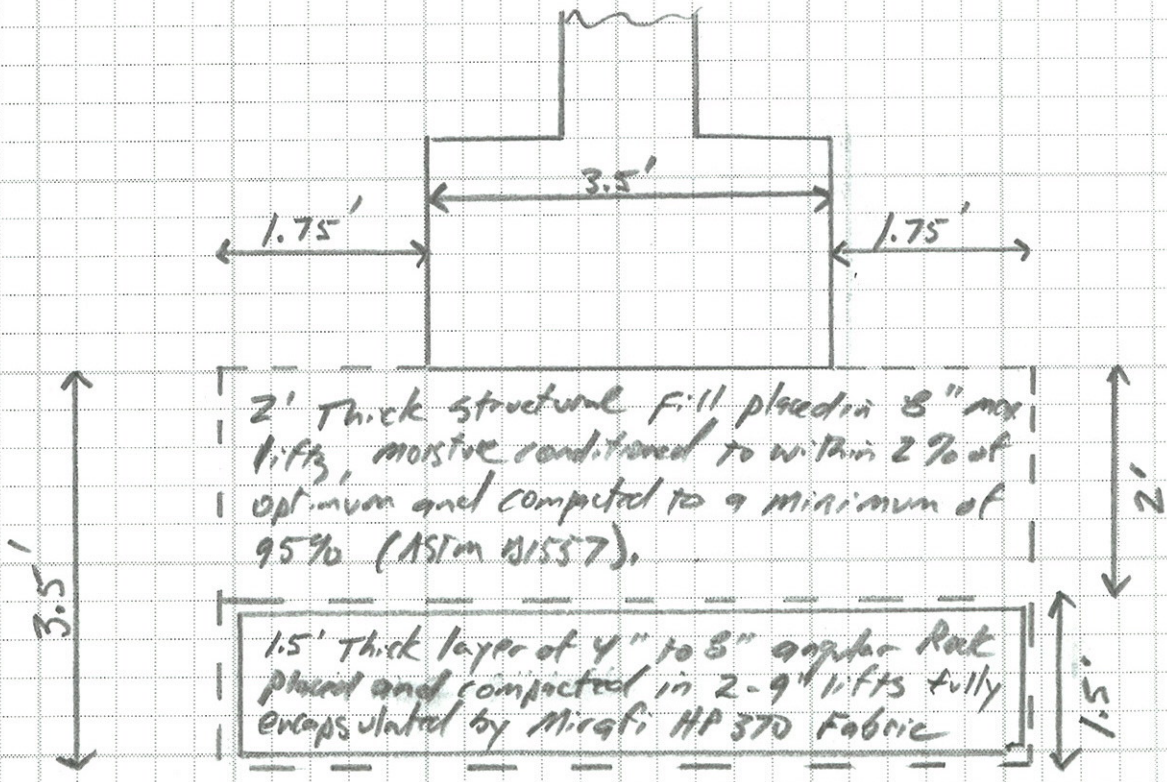 3.5'
1.75'
1.75'
2' Thick structural fill placed in 8" max
lifts, moistue conditioned to within 2% of
optimum and compacted to a minimum of
95% (ASTM D1557).
2'
3.5'
1.5' Thick layer of 4" to 8" angular Rock
placed and compacted in 2-9" lifts fully
encapsulated by Mirafi HP 370 Fabric
1.5'